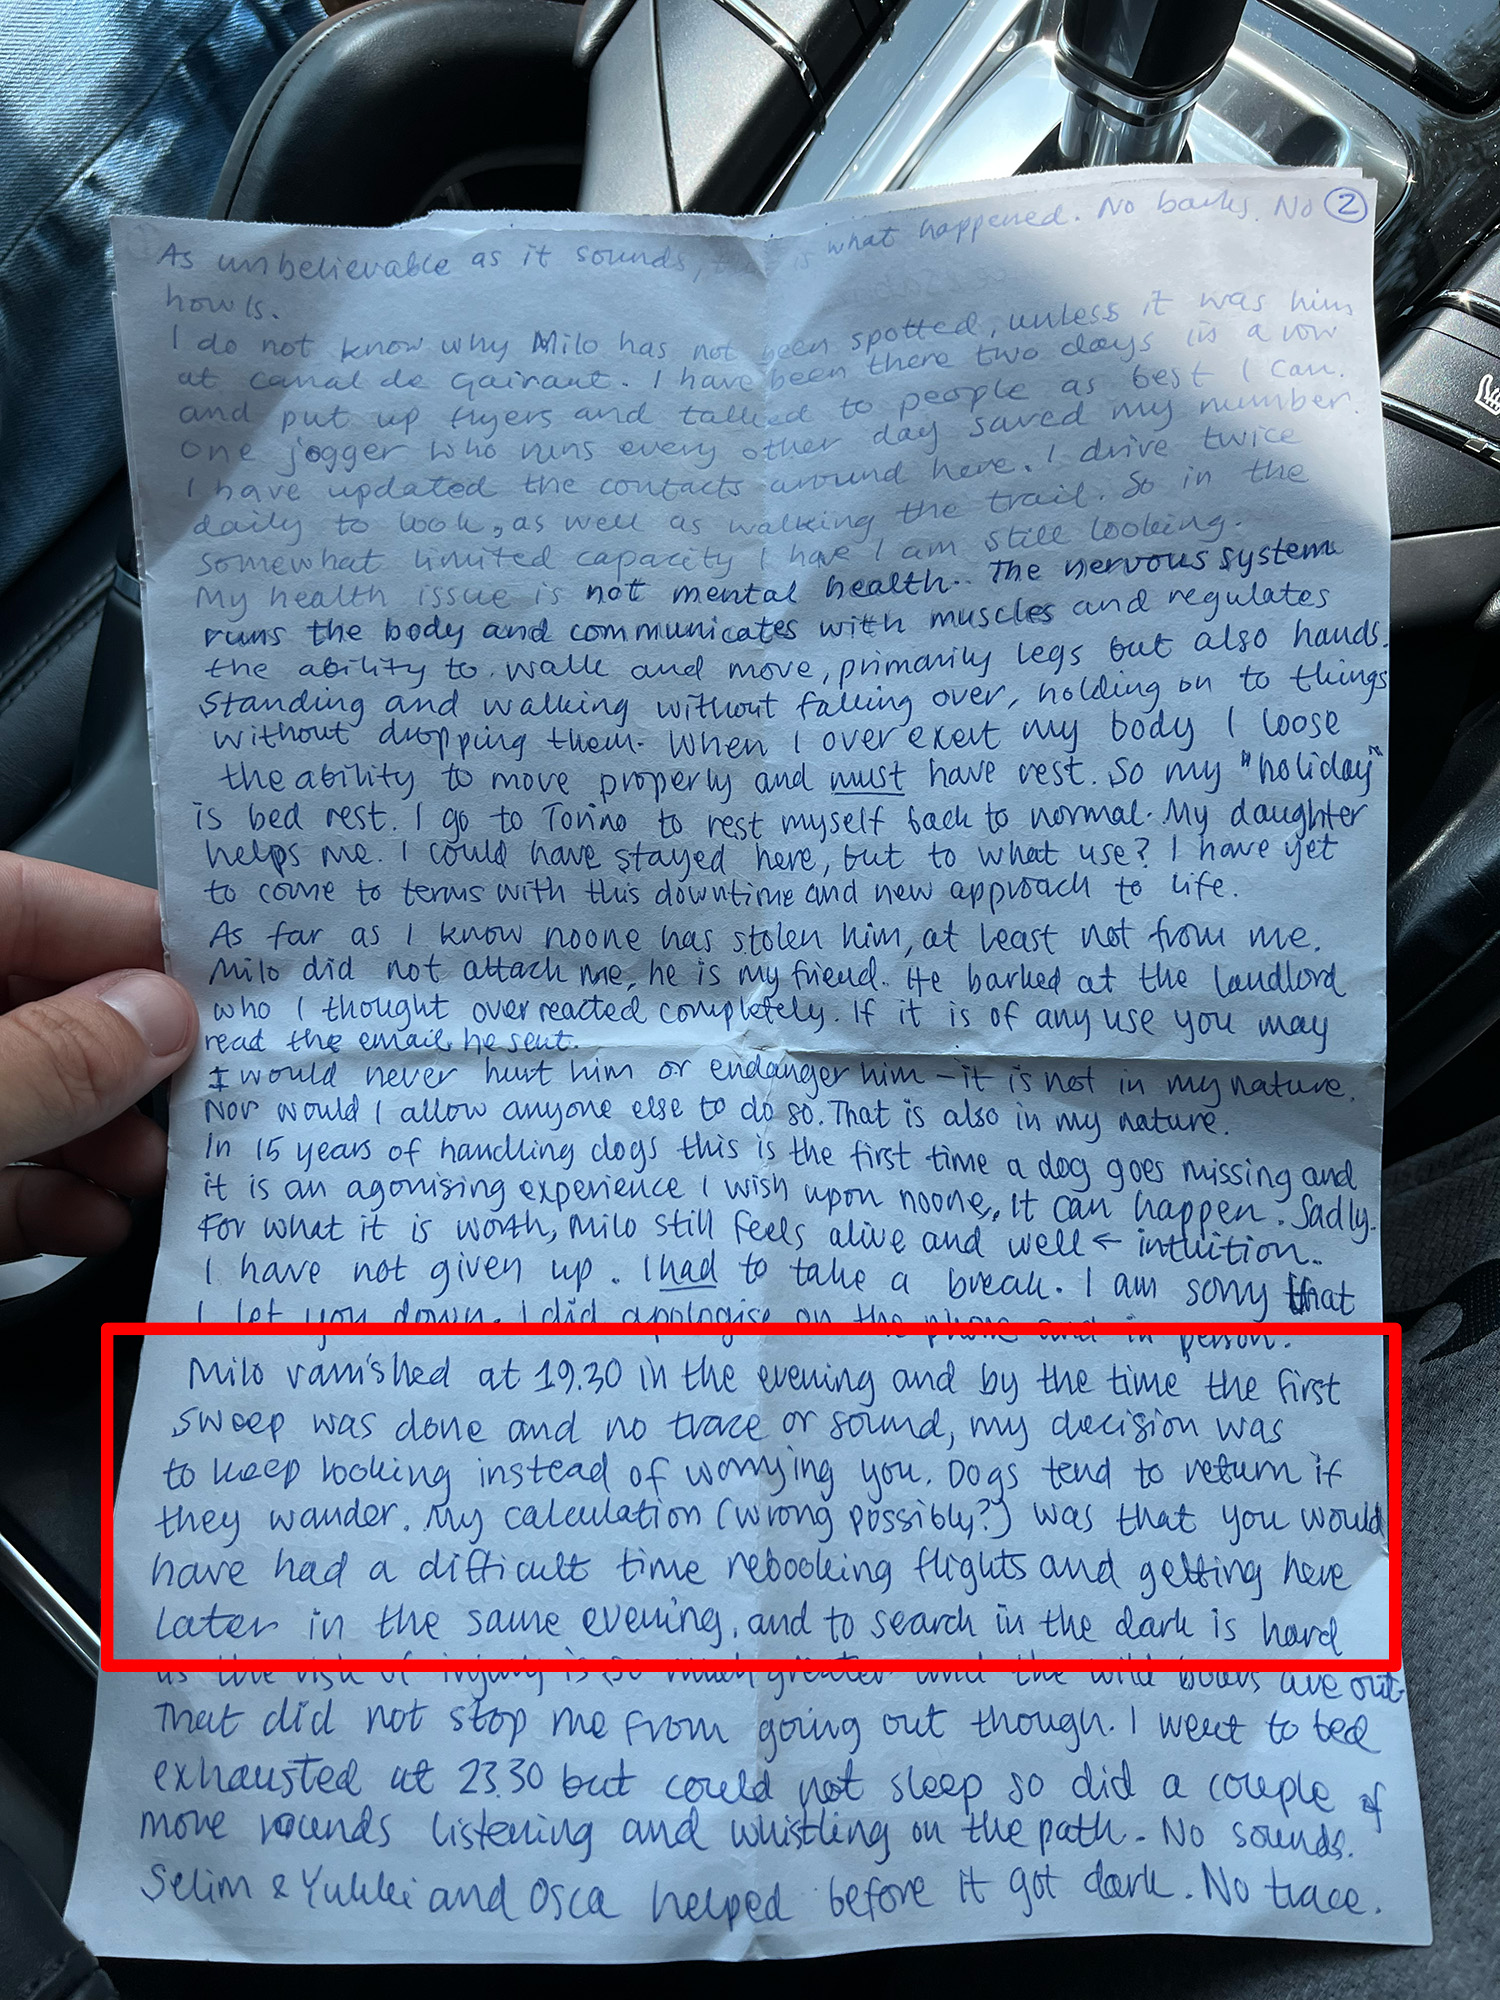 As unbelievable as it sounds, is what happened. No barks. No ②
howls.
I do not know why Milo has not been spotted, unless it was him
at canal de Gairaut. I have been there two days in a row
and put up flyers and talked to people as best I can.
One jogger who runs every other day saved my number.
I have updated the contacts around here. I drive twice
daily to look, as well as walking the trail. So in the
somewhat limited capacity I have I am still looking.
My health issue is not mental health. The nervous system
runs the body and communicates with muscles and regulates
the ability to walk and move, primarily legs but also hands.
Standing and walking without falling over, holding on to things
without dropping them. When I over exert my body I loose
the ability to move properly and must have rest. So my "holiday"
is bed rest. I go to Torino to rest myself back to normal. My daughter
helps me. I could have stayed here, but to what use? I have yet
to come to terms with this downtime and new approach to life.
As far as I know noone has stolen him, at least not from me.
Milo did not attack me, he is my friend. He barked at the landlord
who I thought over reacted completely. If it is of any use you may
read the email he sent.
I would never hurt him or endanger him - it is not in my nature.
Nor would I allow anyone else to do so. That is also in my nature.
In 15 years of handling dogs this is the first time a dog goes missing and
it is an agonising experience I wish upon noone. It can happen. Sadly.
For what it is worth, Milo still feels alive and well ← intuition.
I have not given up. I had to take a break. I am sorry that
I let you down. I did apologise on the phone and in person.
Milo vanished at 19.30 in the evening and by the time the first
sweep was done and no trace or sound, my decision was
to keep looking instead of worrying you. Dogs tend to return if
they wander. My calculation (wrong possibly?) was that you would
have had a difficult time rebooking flights and getting here
later in the same evening, and to search in the dark is hard
as the risk of injury is so much greater and the wild boars are out.
That did not stop me from going out though. I went to bed
exhausted at 23.30 but could not sleep so did a couple of
more rounds listening and whistling on the path. No sounds.
Selim & Yukki and Osca helped before it got dark. No trace.